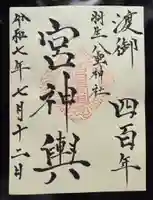 渡御 四百年
羽生 八雲神社
宮神輿
令和七年七月十二日